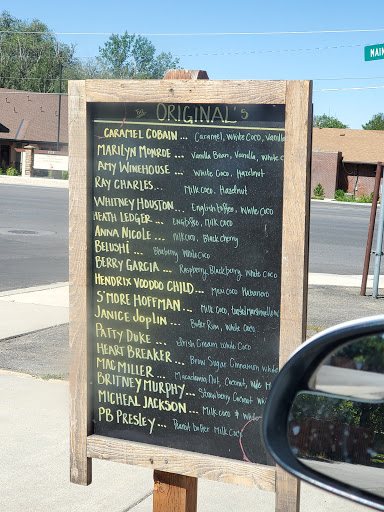 MAIN
The ORIGINAL'S
CARAMEL COBAIN ... Caramel, White Coco, Vanilla
MARILYN MONROE ... Vanilla Bean, Vanilla, White C
AMY WINEHOUSE ... White Coco, Hazelnut
RAY CHARLES... Milk Coco, Hazelnut
WHITNEY HOUSTON ... English toffee, White Coco
HEATH LEDGER ... Eng toffee, Milk Coco
ANNA NICOLE ... Milk Coco, Black cherry
BELUSHI ... Blueberry White Coco
BERRY GARCIA ... Raspberry, Blackberry, White Coco
HENDRIX VOODOO CHILD... Mexi Coco Habanero
S'MORE HOFFMAN ... Milk Coco, toasted Marshmallow
JANICE JOPLIN ... Butter Rum, White Coco
PATTY DUKE ... Irish Cream White Coco
HEART BREAKER ... Brown Sugar Cinnamon White
MAC MILLER ... Macadamia Nut, Coconut, White
BRITNEY MURPHY ... Strawberry Coconut Wh
MICHEAL JACKSON ... Milk Coco & White
PB PRESLEY... Peanut butter Milk Coco